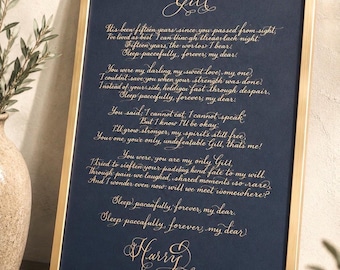 Gill
It's been fifteen years since you passed from sight,
I've loved as best I can through each night.
Fifteen years, the words I bear:
Sleep peacefully, forever, my dear.
You were my darling, my sweet love, my one!
I couldn't save you when your strength was done!
Instead of your side, holding through despair,
Sleep peacefully, forever, my dear.
You said, I cannot eat, I cannot speak
But I know I'll be okay;
I'll grow stronger, my spirit's still free
Your one, your only, undefeatable Gill, that's me!
You were, you are my only Gill,
I tried to soften your fate to my will.
Through pain we laughed, shared moments so rare,
And I wonder even now, will we meet somewhere?
Sleep peacefully, forever, my dear.
Sleep peacefully, forever, my dear.
Harry